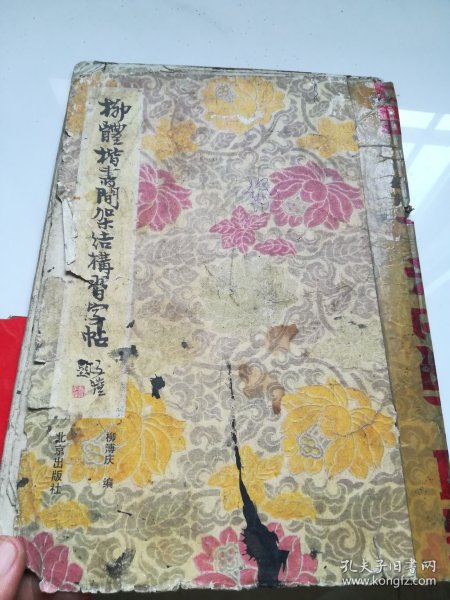 柳體楷書間架结構習字帖
柳溥庆 编
北京出版社
孔夫子旧书网
www.kongfz.com